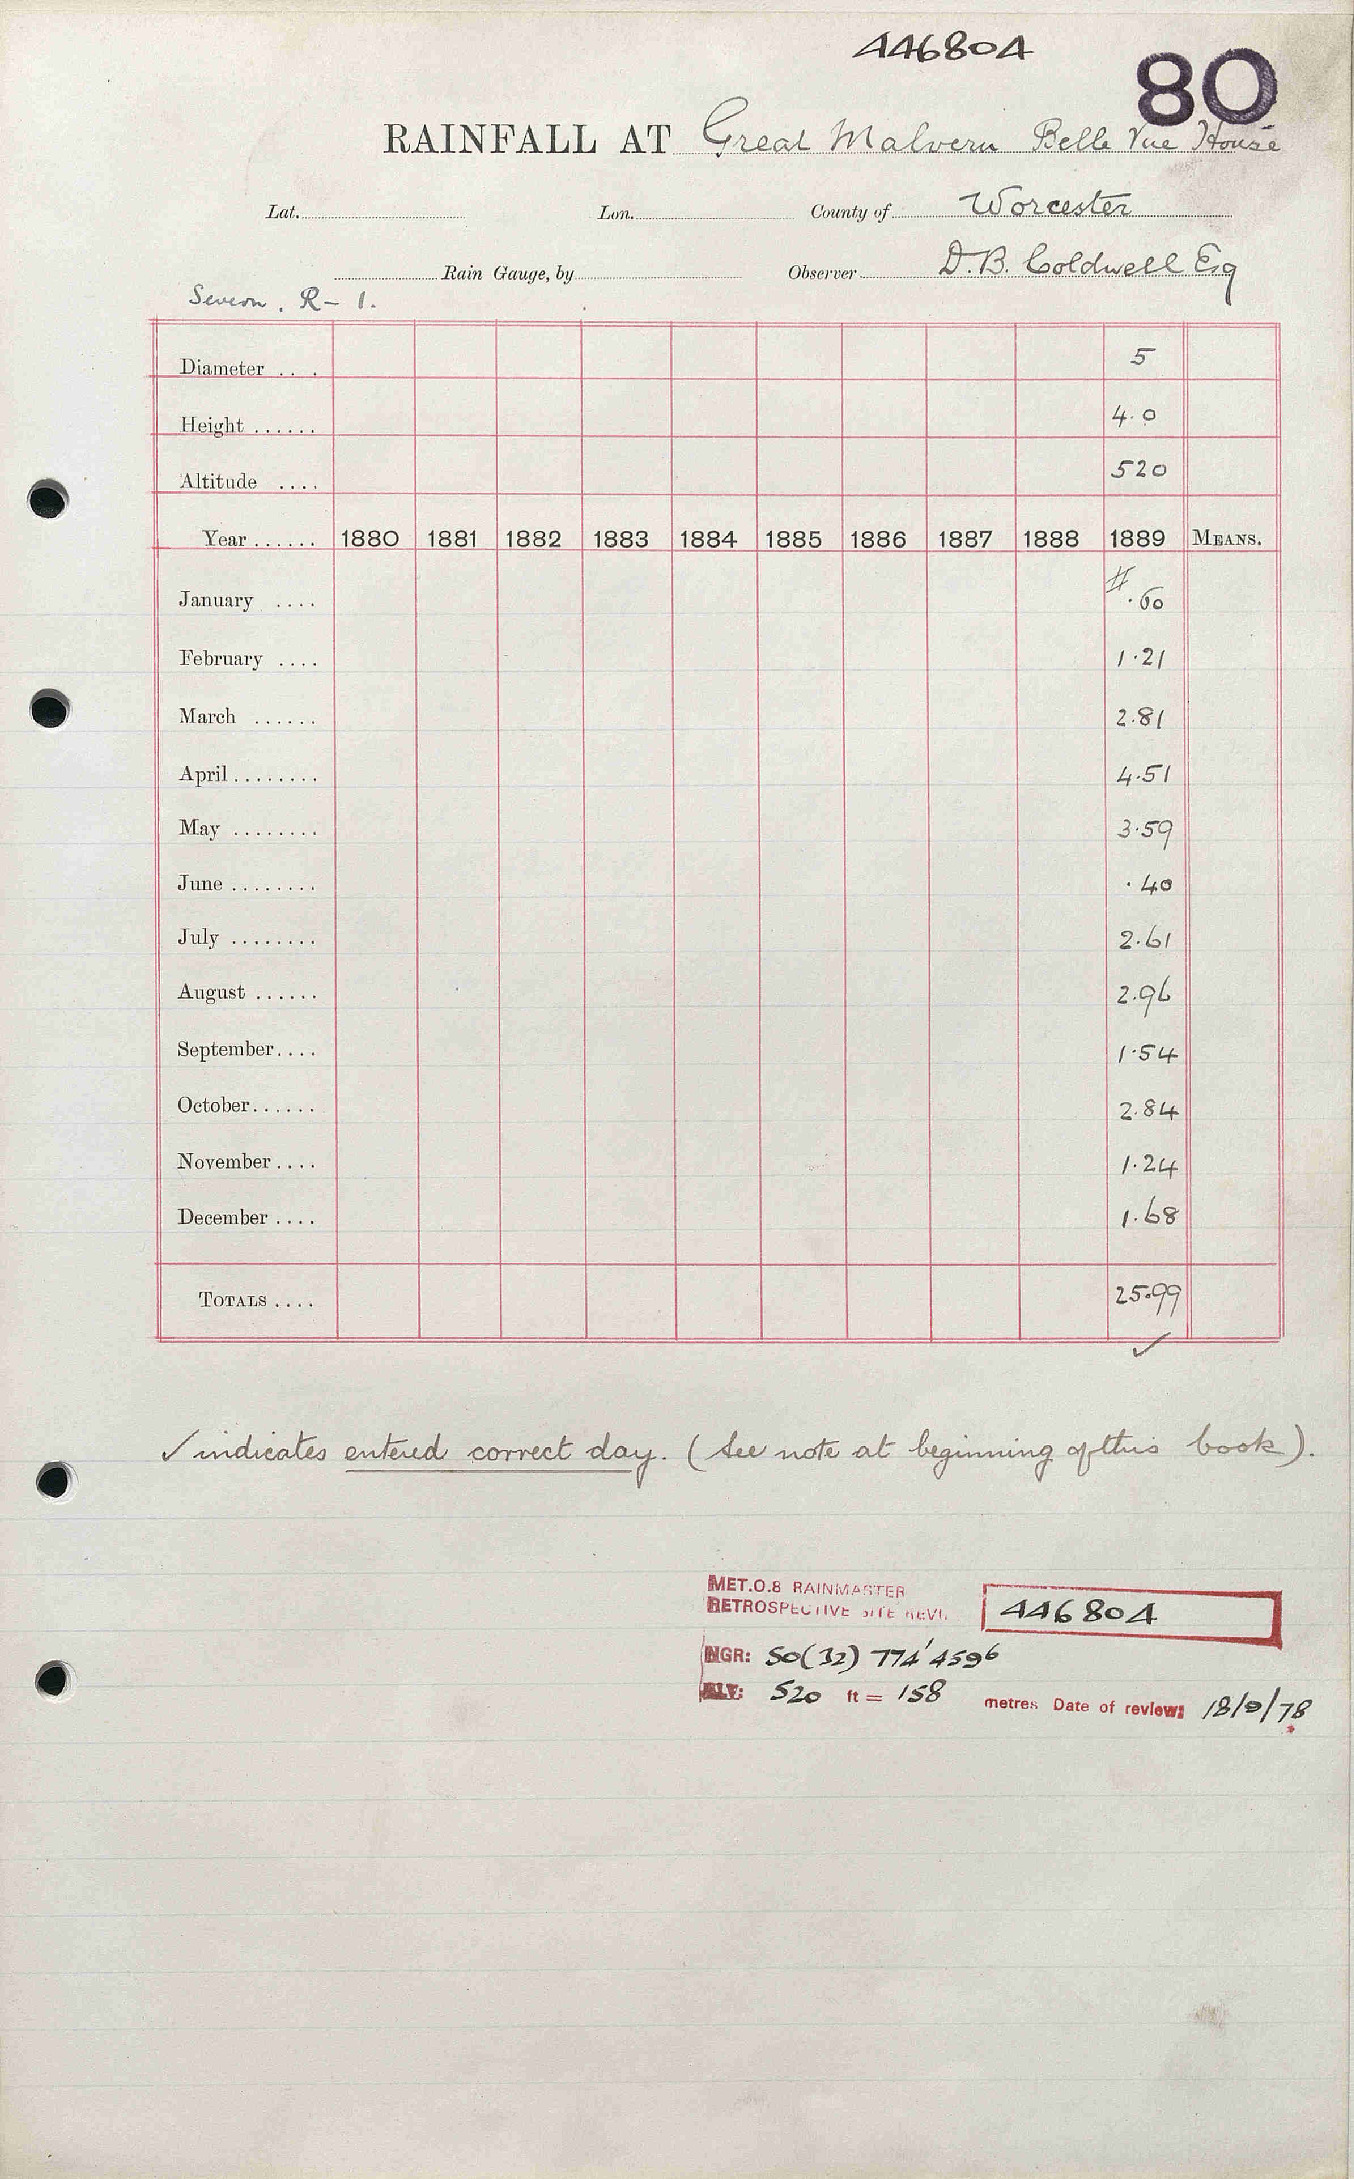 446804
80
RAINFALL AT Great Malvern Belle Vue House
Lat. Lon. County of Worcester
Rain Gauge, by Observer D.B. Coldwell Esq
Severn. R - 1.
Diameter ... 5
Height ...... 4.0
Altitude .... 520
Year ...... 1880 1881 1882 1883 1884 1885 1886 1887 1888 1889 MEANS.
January .... # .60
February .... 1.21
March ...... 2.81
April ........ 4.51
May ........ 3.59
June ........ .40
July ........ 2.61
August ...... 2.96
September.... 1.54
October...... 2.84
November.... 1.24
December .... 1.68
TOTALS .... 25.99
✓
✓ indicates entered correct day. (See note at beginning of this book).
MET.O.8 RAINMASTER
RETROSPECTIVE SITE REVI. 446804
NGR: SO(32) 774 4596
ALT: 520 ft = 158 metres Date of review: 18/9/78